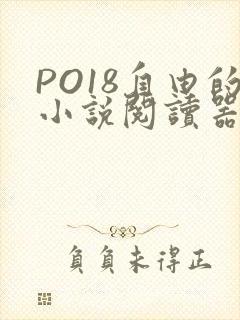 PO18自由的
小說閱讀器
負負未得正